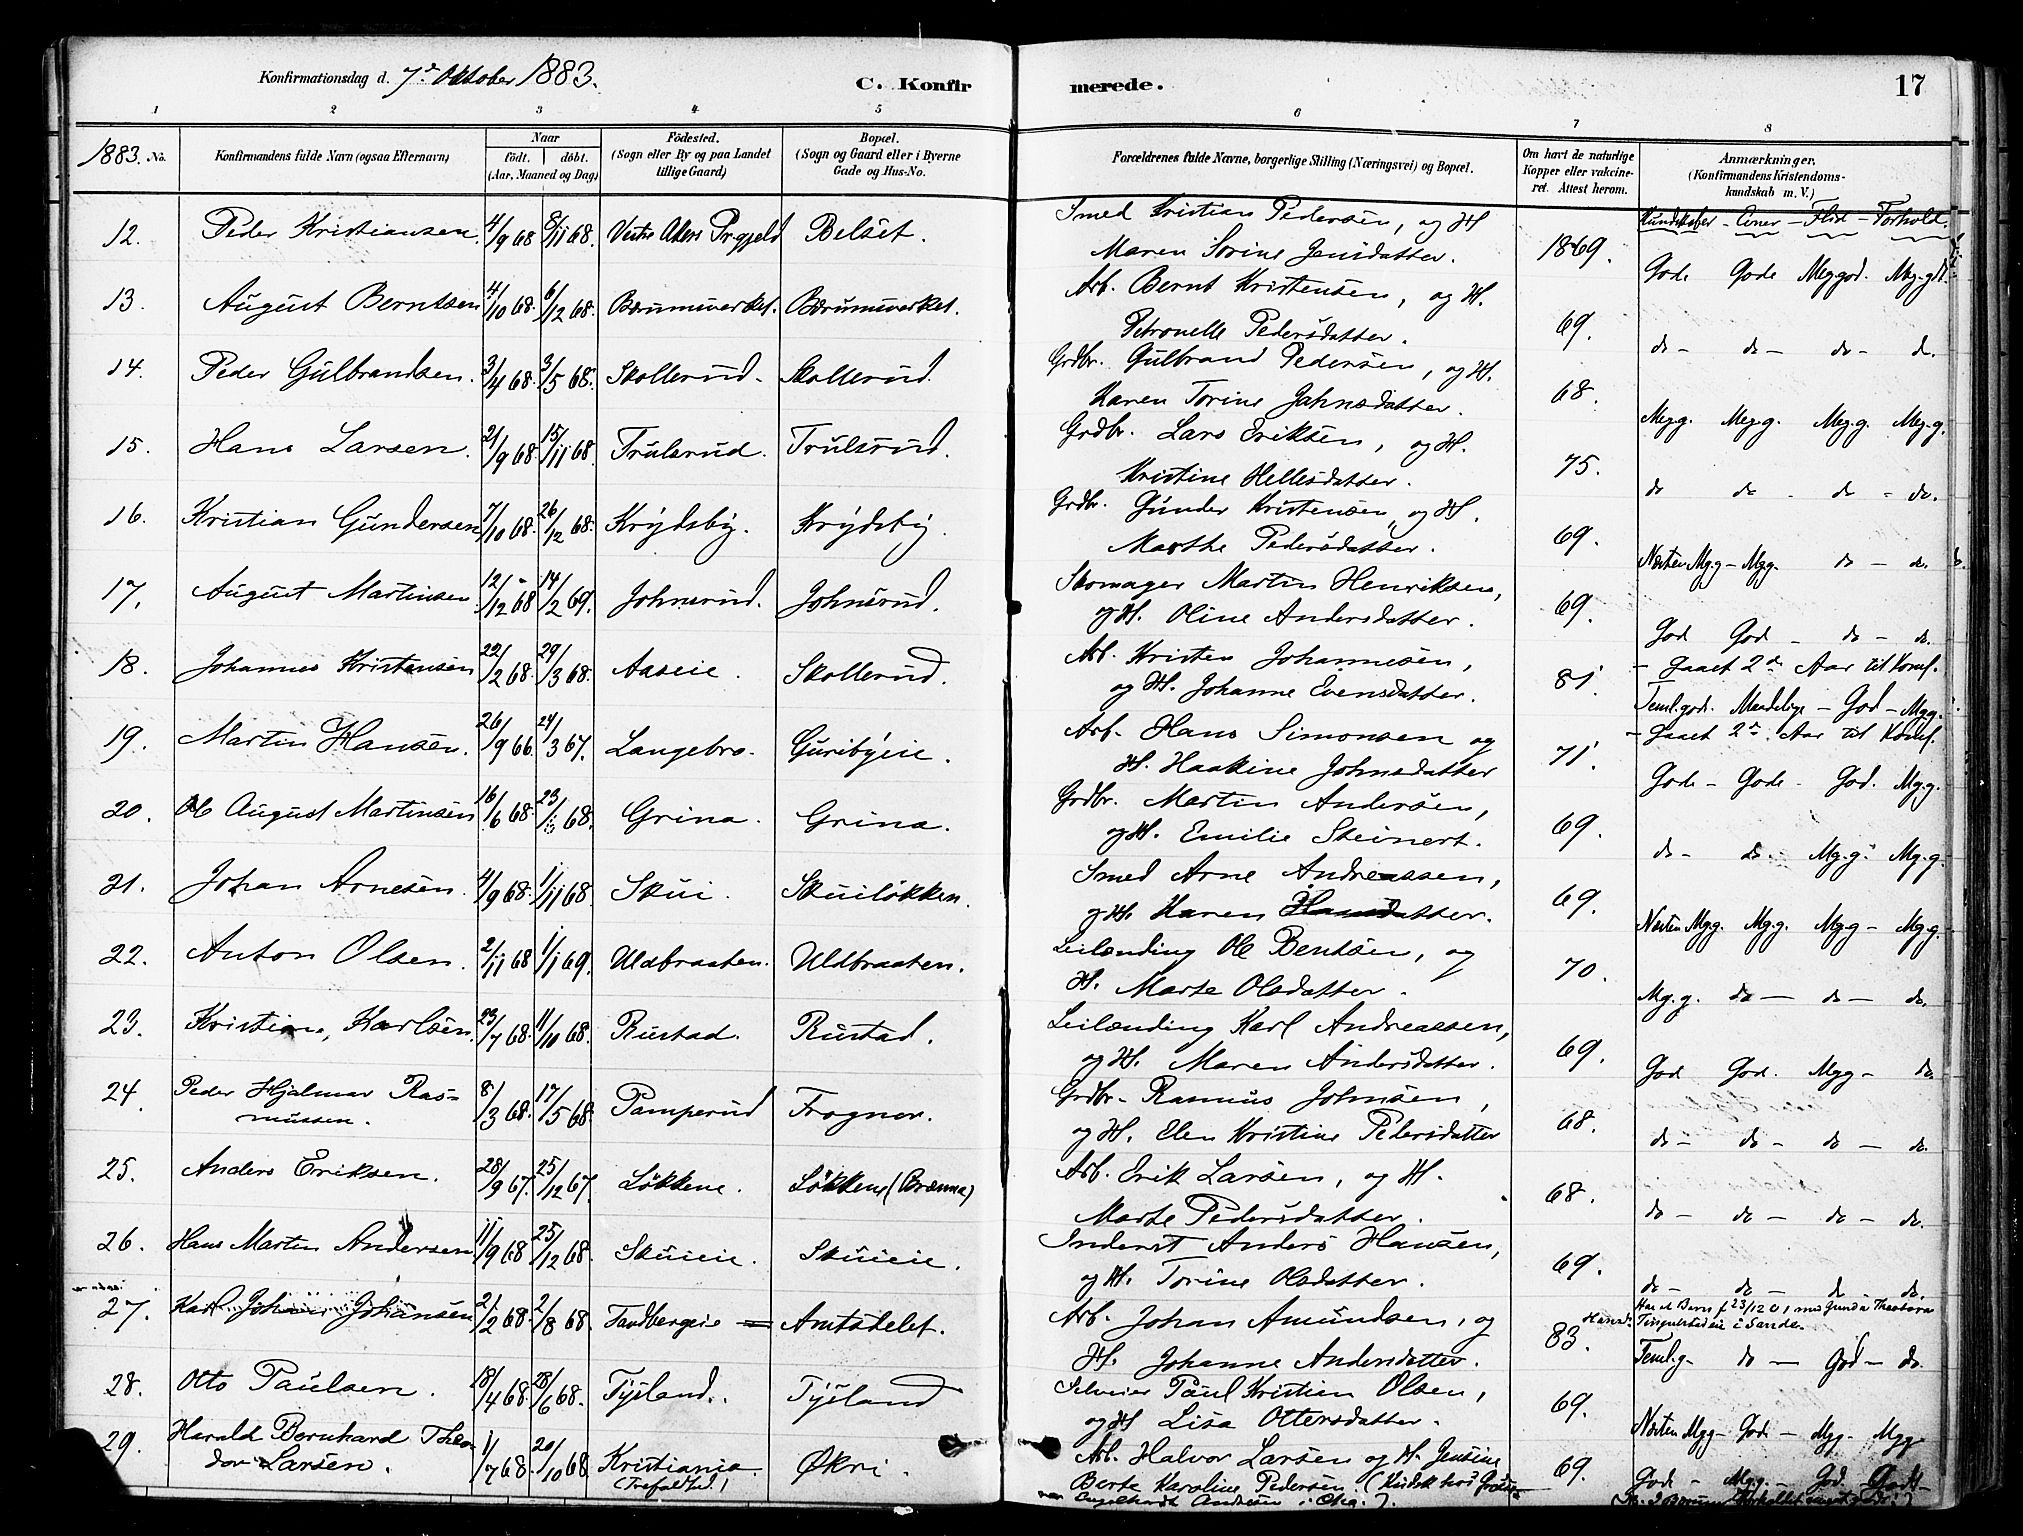 Konfirmationsdag d. 7de Oktober 1883.
C. Konfirmerede.
17
1 2 3 4 5 6 7 8
1883. No.
Konfirmandens fulde Navn (ogsaa Efternavn)
Naar
födt. döbt.
(Aar, Maaned og Dag)
Födested.
(Sogn eller By og paa Landet
tillige Gaard)
Bopæl.
(Sogn og Gaard eller i Byerne
Gade og Hus-No.
Forældrenes fulde Navne, borgerlige Stilling (Næringsvei) og Bopæl.
Om havt de naturlige
Kopper eller vakcine-
ret. Attest herom.
Anmærkninger.
(Konfirmandens Kristendoms-
kundskab m. V.)
Kundskaber - Evner - Flid - Forhold.
12. Peder Kristiansen. 4/9 68 8/11 68. Vestre Akers Prgjeld Belset. Smed Kristian Pedersen, og H
Maren Sorine Jensdatter. 1869. Gode Gode Meg god. Mg. gdt.
13. August Berntsen 4/10 68. 6/12 68. Bærumsverket. Bærumsverket. Arb. Bernt Kristensen, og H.
Petronelle Pedersdatter. 69. do - do - do - d.
14. Peder Gulbrandsen. 3/4 68. 3/5 68. Skollerud. Skollerud. Grdbr. Gulbrand Pedersen, og H.
Karen Torine Jahnsdatter. 68. Meg.g. Meg.g. Meg.g. Meg.g.
15. Hans Larsen. 21/9 68. 15/11 68. Trulsrud. Trulsrud. Grdbr. Lars Eriksen, og H.
Kristine Hellesdatter. 75. do do - do - do.
16. Kristian Gundersen 7/10 68. 26/12 68. Krydsby. Krydsby. Grdbr. Gunder Kristensen, og H.
Marthe Pedersdatter. 69. Næsten Mg.g - Mgg. do - do.
17. August Martinsen 12/12 68 14/2 69. Johnsrud. Johnsrud. Skomager Martin Henriksen,
og H. Oline Andersdatter. 69. God God - do - do.
18. Johannes Kristensen 22/2 68. 29/3 68. Aaseie. Skollerud. Arb. Kristen Johannesen,
og H. Johanne Evensdatter. 81. - Gaaet 2de Aar til Konf.
Teml. god. Maadelige - God - Mgg.
19. Martin Hansen. 26/9 66. 24/3 67. Langebro. Guribyeie. Arb. Hans Simonsen og
H. Haakine Johnsdatter 71. - Gaaet 2de Aar til Konf.
Gode - Gode - God. Mg.g.
20. Ole August Martinsen 16/6 68. 23/ 68. Grina. Grina. Grdbr. Martin Andersen,
og H. Emilie Steinert. 69. do - do. Mg.g. Mg.g.
21. Johan Arnesen. 4/9 68. 1/11 68. Skui. Skuiløkken. Smed Arne Andreassen,
og H. Karen Hansdatter. 69. Næsten Mg.g. Mg.g. Mg.g - Mg.g.
22. Anton Olsen. 2/11 68 1/1 69. Uldbraaten. Uldbraaten. Leilænding Ole Bentsen, og
H. Marte Olsdatter. 70. Mg.g. do - do - do.
23. Kristian Karlsen. 23/7 68. 11/10 68. Rustad. Rustad. Leilænding Karl Andreassen,
og H. Maren Andersdatter. 69. God God. Mgg - do.
24. Peder Hjalmar Ras-
mussen. 8/3 68. 17/5 68. Pamperud Frogner. Grdbr. Rasmus Johnsen,
og H. Elen Kristine Pedersdatter 68. do - do - do - do.
25. Anders Eriksen. 28/9 67. 25/12 67. Løkkene. Løkkene (Brænna) Arb. Erik Larsen, og H.
Marte Pedersdatter. 68. do - do - do - do.
26. Hans Martin Andersen 11/9 68 25/12 68. Skuieie. Skuieie. Inderst Anders Hansen,
og H. Torine Olsdatter. 69. do - do - do - do.
27. Karl Johan Johansen 2/2 68. 2/8 68. Tandbergeie Amtsdelet. Arb. Johan Amundsen, og
H. Johanne Andersdatter. 83. Har et Barn f. 23/12 01 med Gunda Theodora
i Sande.
Teml.g - do - God - do.
28. Otto Paulsen. 18/4 68. 28/6 68. Tysland. Tysland Selveier Paul Kristian Olsen,
og H Lisa Ottersdatter. 69. Næsten Mgg - God - Mg. Mgg
29. Harald Bernhard Theo
dor Larsen. 1/7 68. 20/10 68 Kristiania.
(Trefoldhed.) Økri. Arb. Halvor Larsen og H. Jensine
Berte Karoline Pedersen. 69. God - Mg.g. - God. Godt